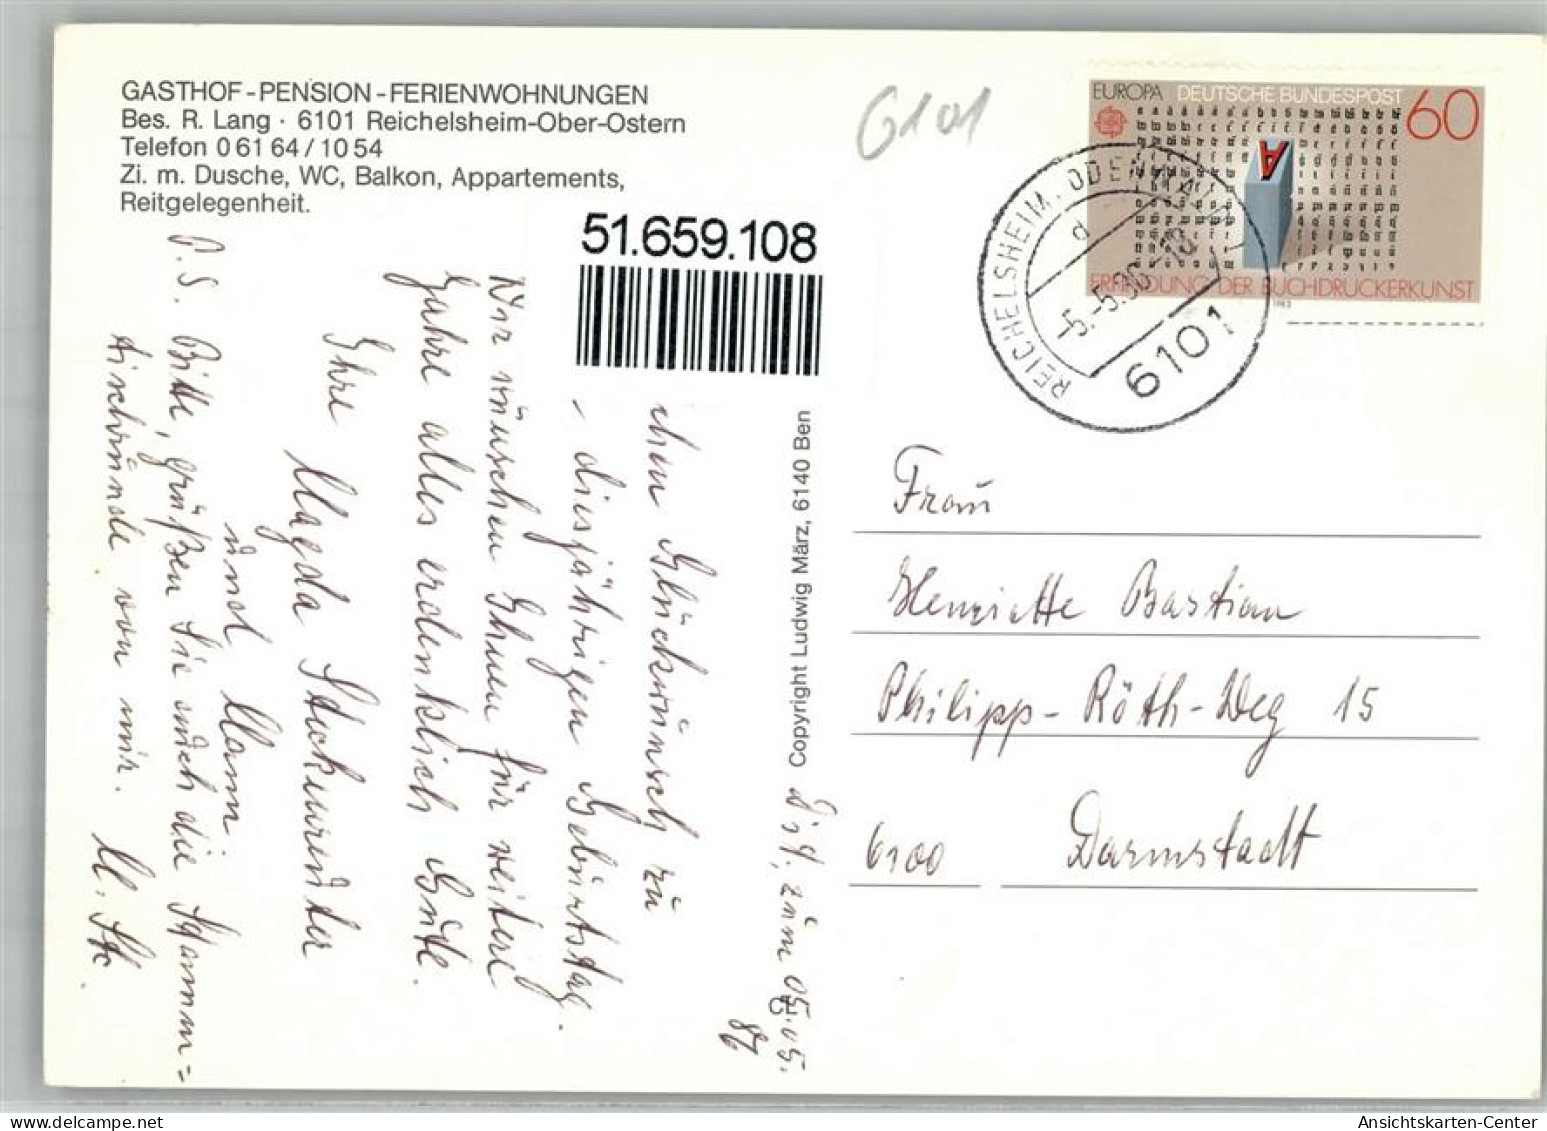 GASTHOF-PENSION-FERIENWOHNUNGEN
Bes. R. Lang · 6101 Reichelsheim-Ober-Ostern
Telefon 0 61 64 / 10 54
Zi. m. Dusche, WC, Balkon, Appartements,
Reitgelegenheit.
6101
EUROPA DEUTSCHE BUNDESPOST 60
A
ERFINDUNG DER BUCHDRUCKERKUNST
1983
REICHELSHEIM, ODENW
d
-5.-5.86
6101
51.659.108
Dst, zum 05.05.
86
chen Glückwünsch zu
diesjährigen Gebürtstag.
Wir wünschen Ihnen für weitere
Jahre alles erdenklich Güte.
Ihre Magda
ünd Mann
P.S. Bitte, grüßen Sie auch die Stamm=
tischrunde von mir. M. St.
Copyright Ludwig März, 6140 Ben
Fraü
Henriette Bastian
Philipp-Röth-Weg 15
6100 Darmstadt
Ansichtskarten-Center